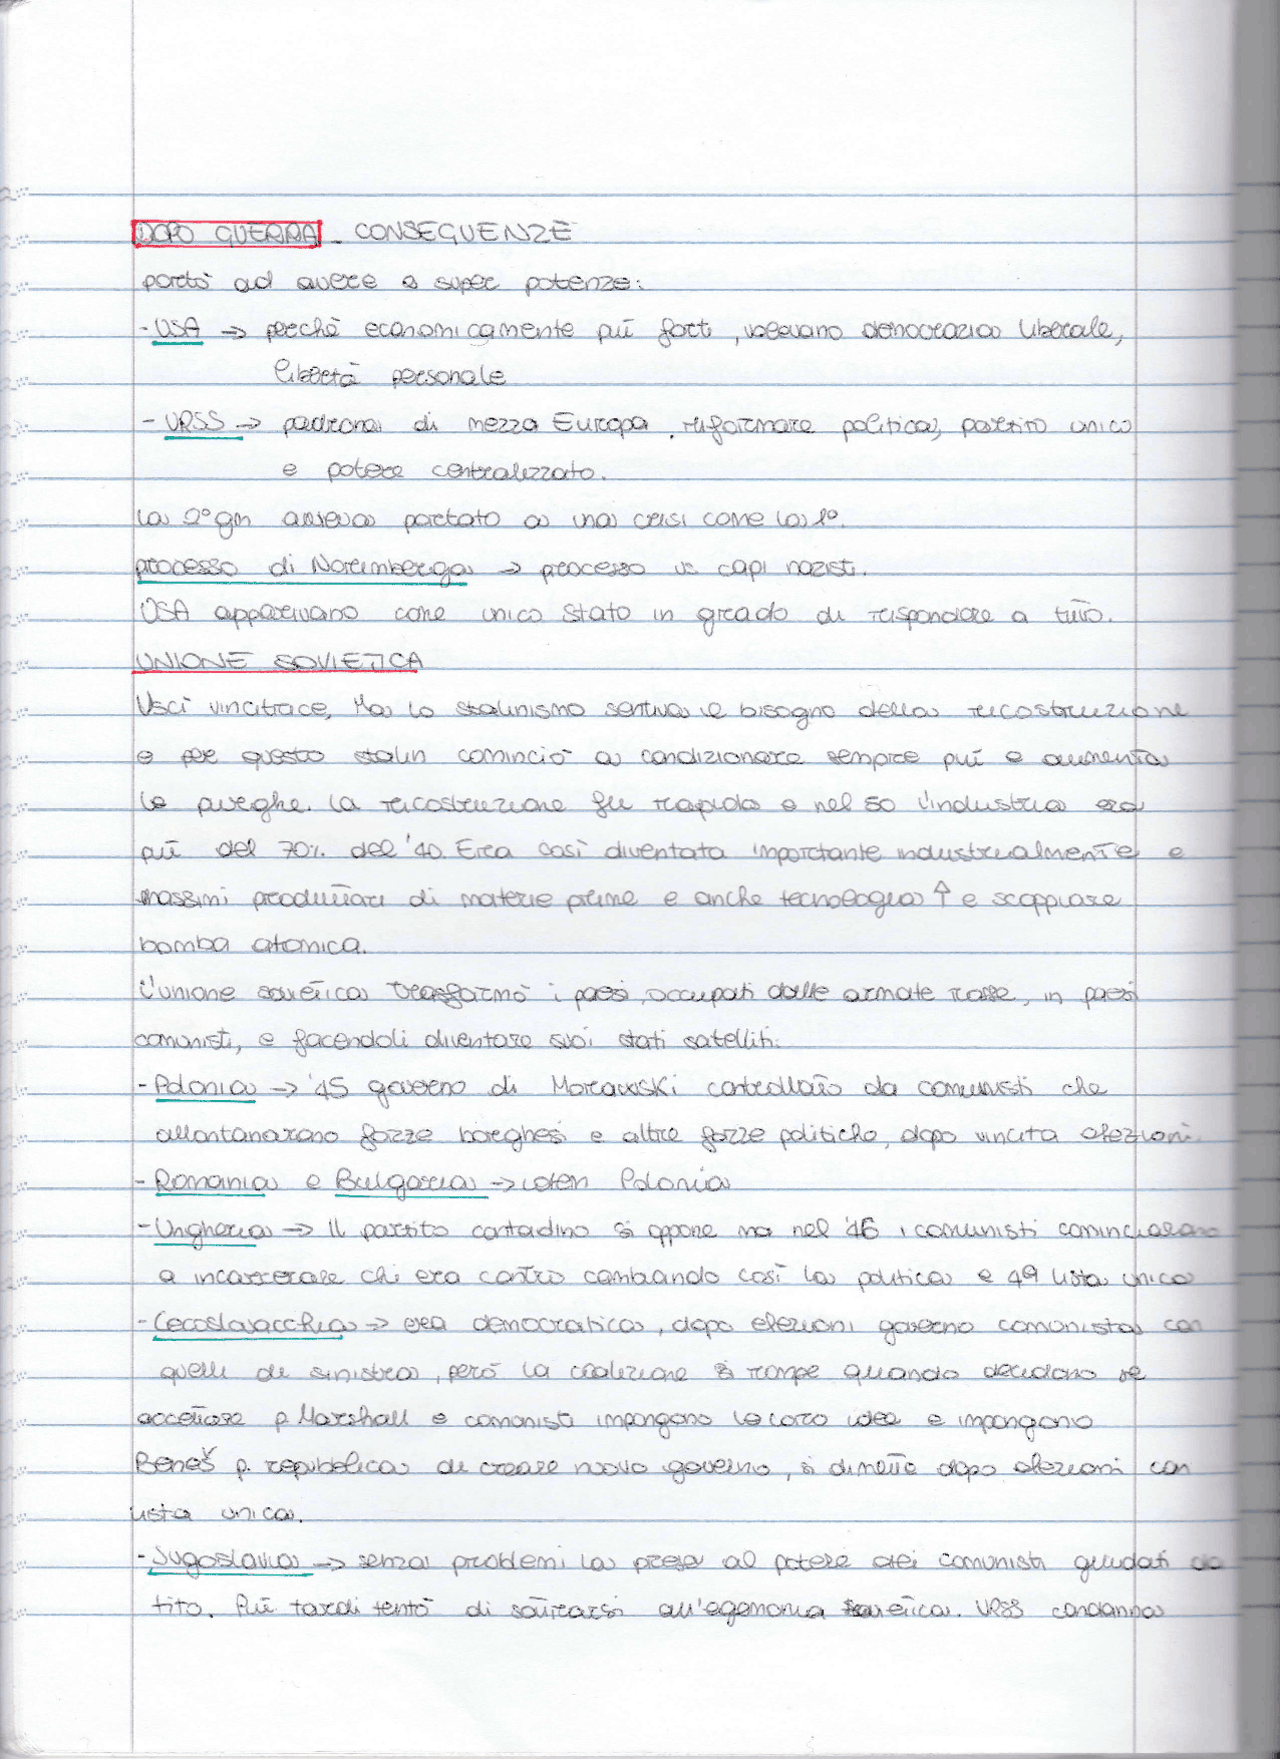 DOPO GUERRA - CONSEGUENZE
portò ad avere 2 super potenze:
- USA → perchè economicamente più forti, volevano democrazia liberale,
libertà personale
- URSS → padrona di mezza Europa, riformare politica, partito unico
e potere centralizzato.
la 2° gm aveva portato a una crisi come la 1°.
processo di Norimberga → processo vs capi nazisti.
USA apparivano come unico stato in grado di rispondere a tutto.
UNIONE SOVIETICA
Uscì vincitrice, Ma lo stalinismo sentiva il bisogno della ricostruzione
e per questo stalin cominciò a condizionare sempre più e aumenta
le purghe. la ricostruzione fu rapida e nel 50 l'industria era
più del 70% del '40. Era così diventata importante industrialmente e
massimi produttori di materie prime e anche tecnologia ↑ e scoppiare
bomba atomica.
L'unione sovietica trasformò i paesi, occupati dalle armate rosse, in paesi
comunisti, e facendoli diventare suoi stati satelliti:
- Polonia → '45 governo di Morawski controllato da comunisti che
allontanarono forze borghesi e altre forze politiche, dopo vincita elezioni.
- Romania e Bulgaria → idem Polonia
- Ungheria → Il partito contadino si oppone ma nel '46 i comunisti cominciarono
a incarcerare chi era contro cambiando così la politica e 49 lista unica
- Cecoslovacchia → era democratica, dopo elezioni governo comunista con
quelli di sinistra, però la coalizione si rompe quando decidono se
accettare p. Marshall e comunisti impongono la loro idea e impongono
Beneš p. repubblica di creare nuovo governo, si dimette dopo elezioni con
lista unica.
- Jugoslavia → senza problemi la presa al potere dei comunisti guidati da
tito. Più tardi tentò di sottrarsi all'egemonia sovietica. URSS condanna